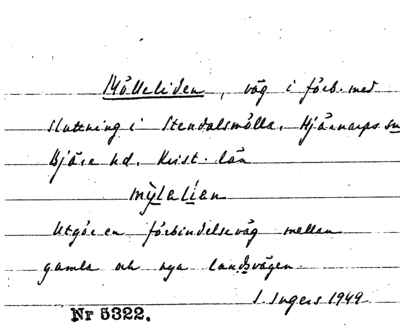 Mölleliden, väg i förb. med
sluttning i Stendalsmölla. Hjärnarps sn
Bjäre hd. Krist. län
mỳlelien
Utgör en förbindelseväg mellan
gamla och nya landsvägen.
I. Ingers 1949.
Nr 5322.